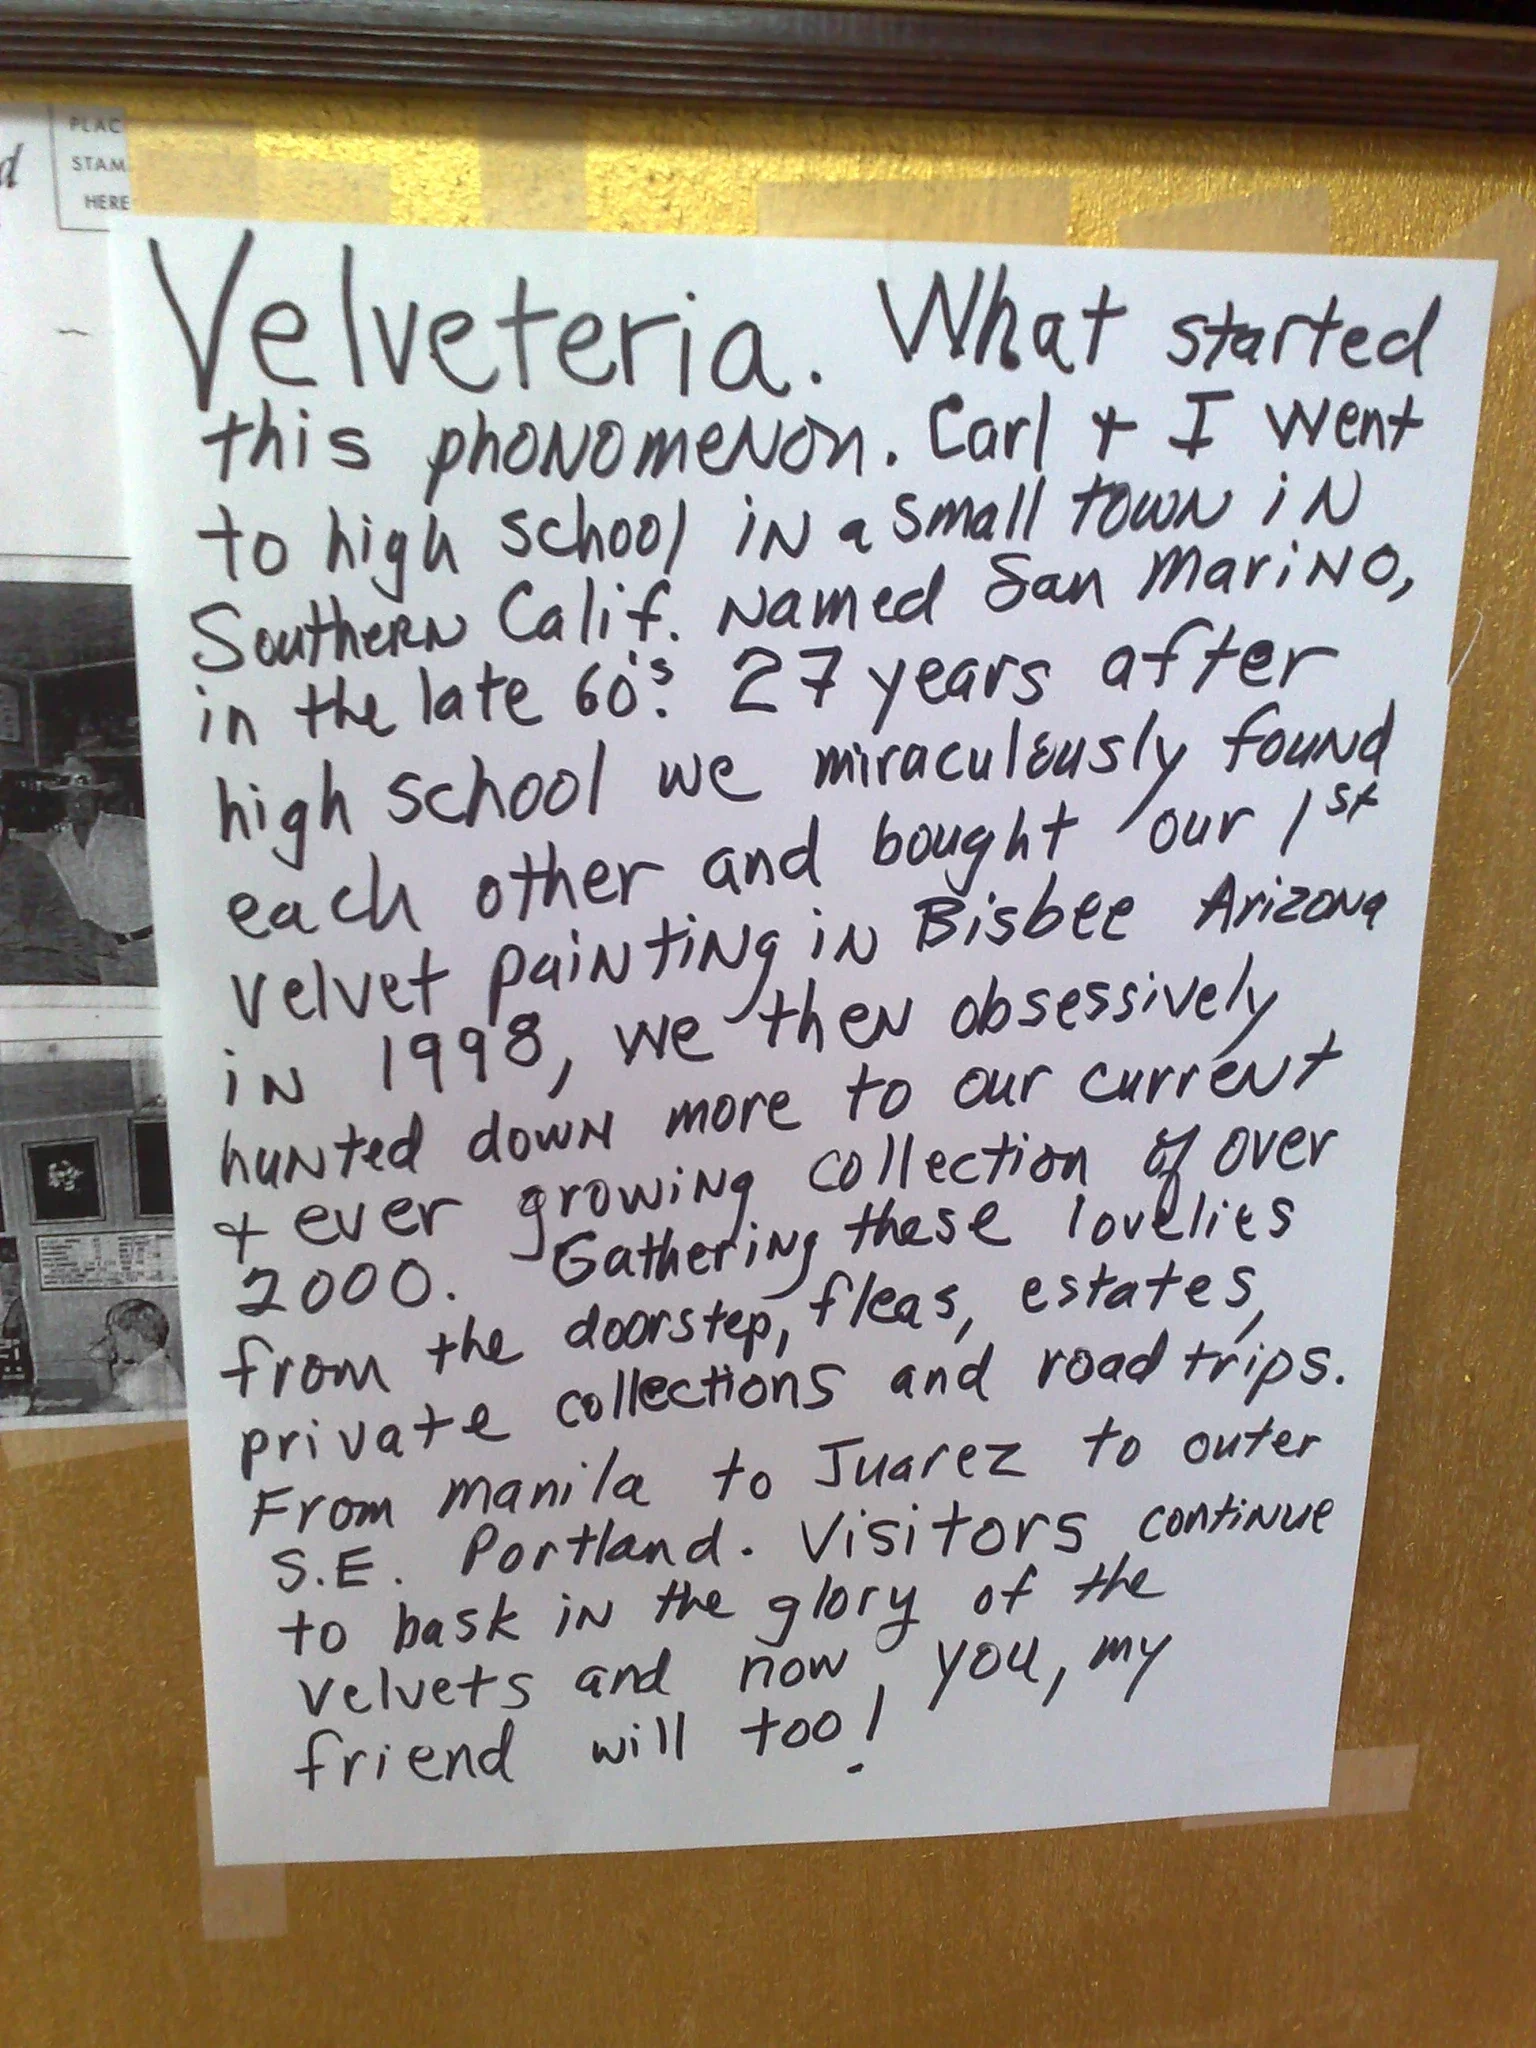 d
PLAC
STAM
HERE
Velveteria. What started
this phonomenon. Carl + I went
to high school in a small town in
Southern Calif. named San Marino,
in the late 60's. 27 years after
high school we miraculously found
each other and bought our 1st
velvet painting in Bisbee Arizona
in 1998, we then obsessively
hunted down more to our current
+ ever growing collection of over
2000. Gathering these lovelies
from the doorstep, fleas, estates,
private collections and road trips.
From manila to Juarez to outer
S.E. Portland. Visitors continue
to bask in the glory of the
velvets and now, you, my
friend will too!